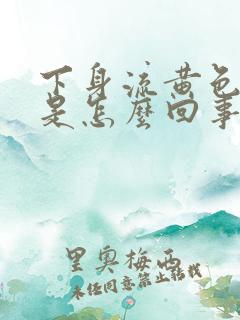 下身流黄色
是怎麽回事
里奥梅西
未经同意禁止转载